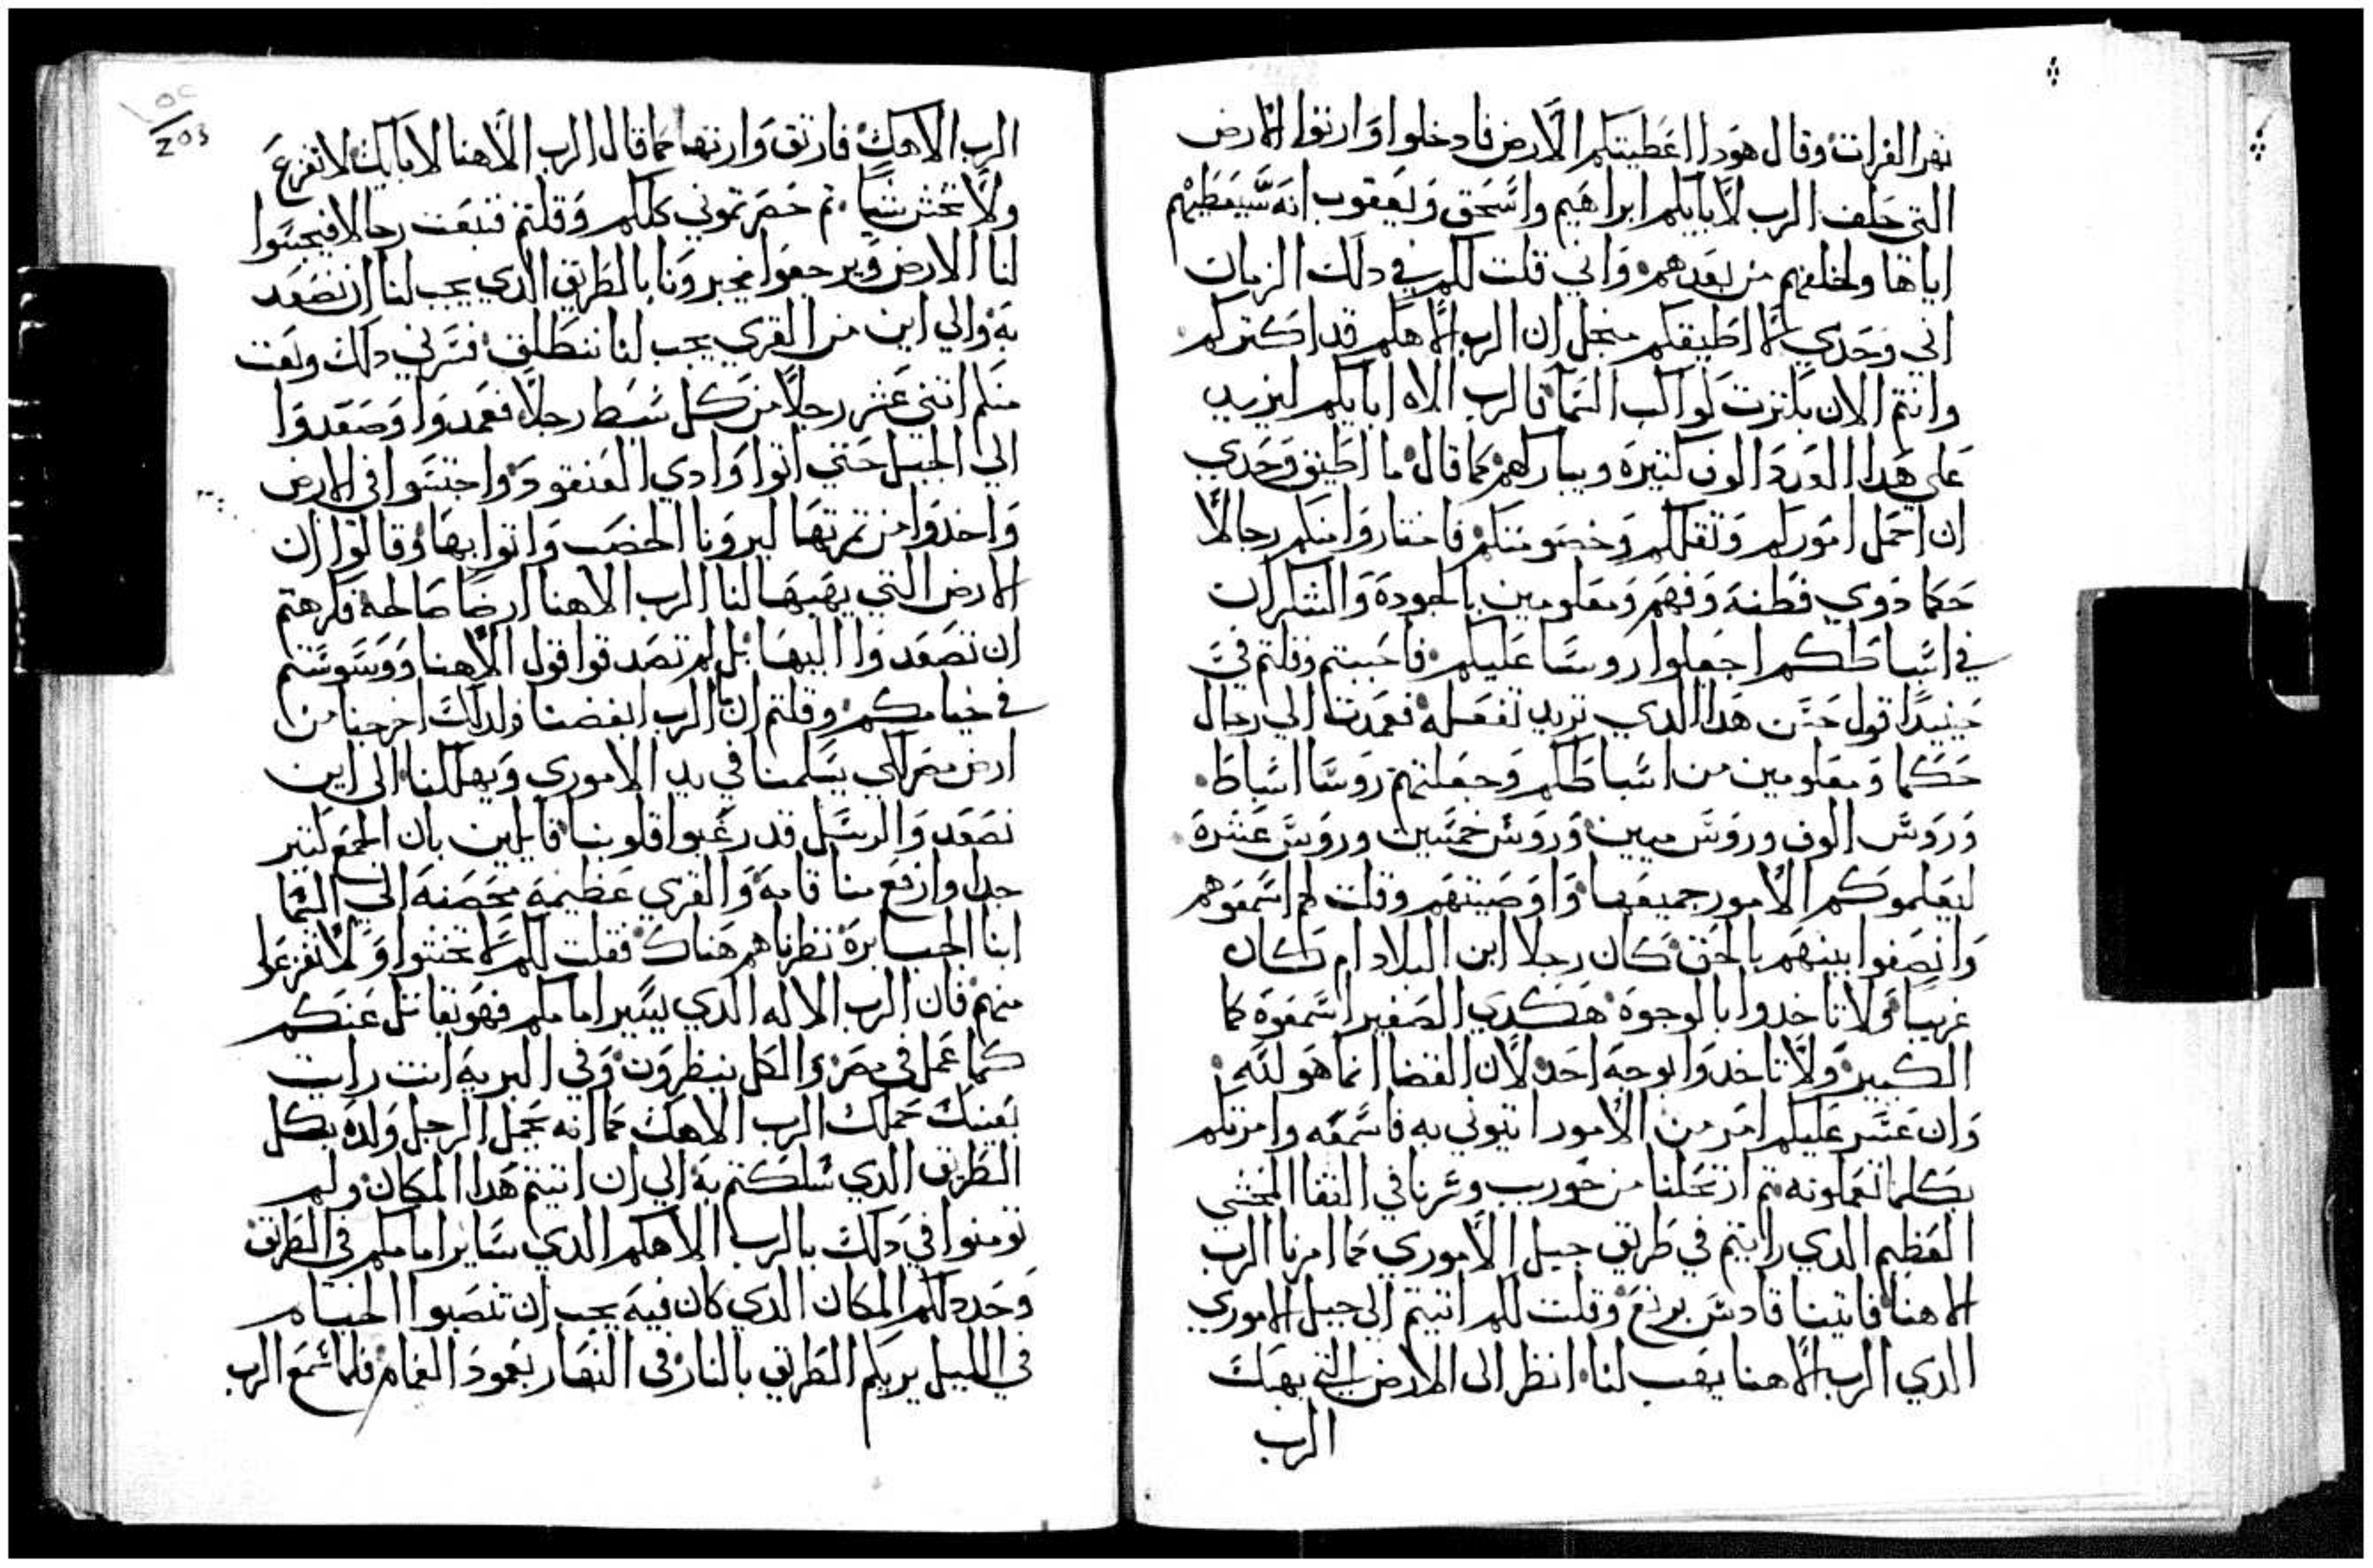 نهر الفرات وقال هودا اعطيتكم الارض فادخلوا وارتوا الارض
التي حلف الرب لابايكم ابراهيم واسحق ويعقوب انه سيعطيهم
اياها ولخلفهم من بعدهم واني قلت لكم في دلك الزمان
اني وحدي لا اطيقكم منجل ان الرب الاهكم قد اكتركم
وانتم الان بكترت كواكب السما فالرب الاه ابايكم ليزيد
علي هدا العدد الوف كتيره ويبارككم كما قال ما اطيق وحدي
ان احمل اموركم وتقلكم وخصومتكم فاختاروا منكم رجالا
حكما دوي فطنه وفهم ومعلومين بالجوده والشكران
في اسباطكم اجعلوا روسا عليكم فاجبتم وقلتم في
حينيدا قول حسن هدا الدي تريد تفعله فعمدت الي رجال
حكما ومعلومين من اسباطكم وجعلتهم روسا اسباط
وروس الوف وروس ميين وروس خمسين وروس عشره
ليعلموكم الامور جميعها واوصيتهم وقلت لهم اسمعوهم
وانصفوا بينهم بالحق كان رجلا ابن البلاد ام كان
غريبا ولا تاخدوا بالوجوه هكدي الصغير اسمعوه كما
الكبير ولا تاخدوا بوجه احد لان القضا انما هو لله
وان عسر عليكم امر من الامور ايتوني به فاسمعه وامرتكم
بكلما تعملونه تم ارتحلنا من حوريب وسرنا في القفا المخشي
العظيم الدي رايتم في طريق جبل الاموري كما امرنا الرب
الاهنا فاتينا قادس برنع وقلت لكم اتيتم الي جبل الاموري
الدي الرب الاهنا يهب لنا انظر الى الارض التي يهبك
الرب
203
الرب الاهك فارتق وارتها كما قال الرب الاهنا لابايك لا تفزع
ولا تخش شيا تم حضرتموني كلكم وقلتم فنبعت رجالا فيجسوا
لنا الارض ويرجعوا يخبرونا بالطريق الدي يجب لنا ان نصعد
به والي اين من القري يجب لنا ننطلق فسرني دلك وبعت
منكم اتني عشر رجلا من كل سبط رجلا فعمدوا وصعدوا
الي الجبل حتي اتوا وادي العنقود واجتسوا في الارض
واخدوا من تمرتها ليرونا الخصب واتوا بها وقالوا ان
الارض التي يهبها لنا الرب الاهنا ارضا صالحه فكرهتم
ان تصعدوا اليها بل لم تصدقوا قول الاهنا ووسوستم
في خيامكم وقلتم ان الرب ابغضنا ولدلك اخرجنا من
ارض مصر لكي يسلمنا في يد الاموري ويهلكنا الى اين
نصعد والرسل قد رغبوا قلوبنا قايلين بان الجمع كتير
جدا وارفع منا قامه والقري عظيمه محصنه الي السما
ابنا الجبابره نظرناهم هناك فقلت لكم لا تخشوا ولا تفزعوا
منهم فان الرب الاله الدي يسير امامكم فهو يقاتل عنكم
كما عمل في مصر والكل ينظرون وفي البريه انت رايت
بعينك حملك الرب الاهك كما انه يحمل الرجل ولده بكل
الطريق الدي سلكتم به الي ان اتيتم هدا المكان ولم
تومنوا في دلك بالرب الاهكم الدي ساير امامكم في الطريق
وحدد لكم المكان الدي كان فيه يجب ان تنصبوا الخيام
في الليل يريكم الطريق بالنار في النهار بعمود الغمام فلما سمع الرب